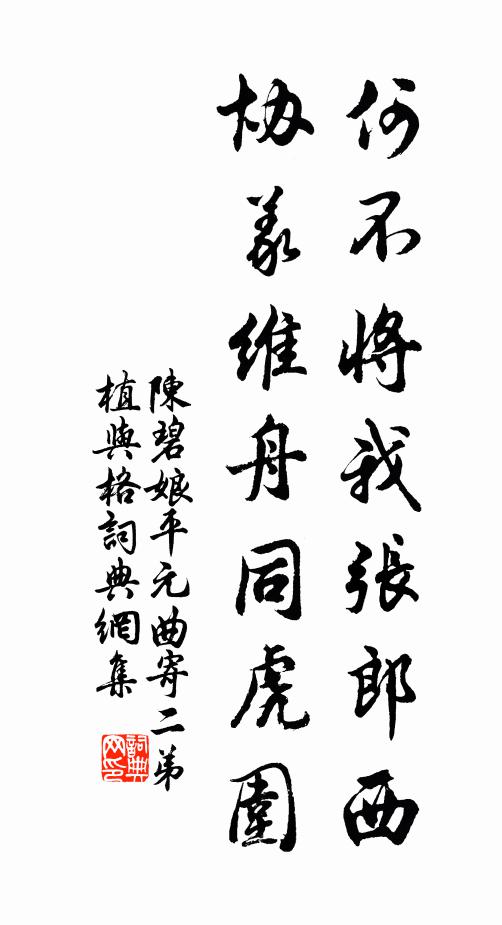 何不將我張郎西
協義維舟同虎圍
陳碧娘平元曲寄二弟
植與格詞典網集
詞典網印